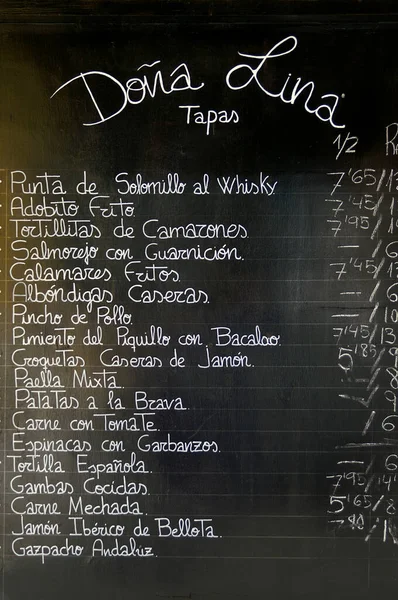 Doña Lina
Tapas
1/2
Punta de Solomillo al Whisky 7'65/
Adobito Frito 7'45/
Tortillitas de Camarones 7'95/
Salmorejo con Guarnición. — / 6
Calamares Fritos. 7'45/
Albóndigas Caseras. — / 6
Pincho de Pollo. — / 10
Pimiento del Piquillo con Bacalao. 7'45/13
Croquetas Caseras de Jamón. 5'85/9
Paella Mixta. — / 8
Patatas a la Brava. — / 9
Carne con Tomate. / 6
Espinacas con Garbanzos.
Tortilla Española. — / 6
Gambas Cocidas. 7'95/14
Carne Mechada. 5'65/8
Jamón Ibérico de Bellota.
Gazpacho Andaluz.